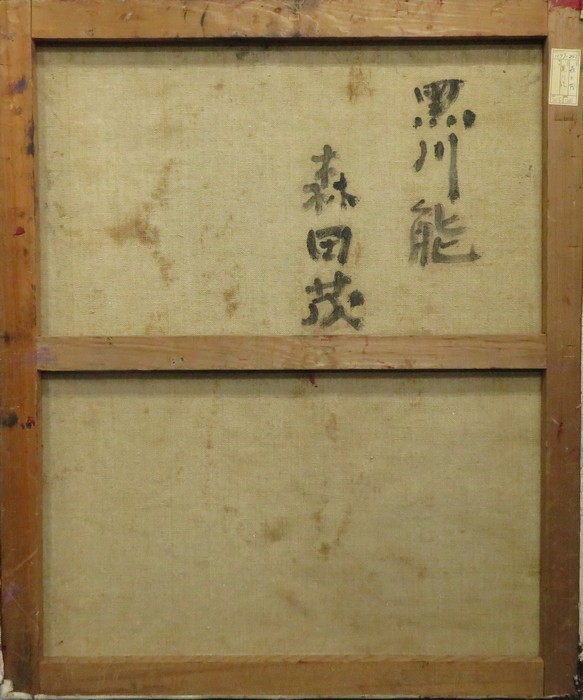 黒川能
森田茂